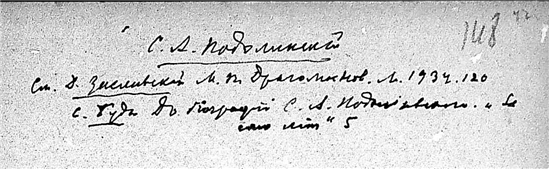 148
С. А. Подолинский
См. Д. Заславский М. П. Драгоманов. М. 1934. 120
С. Буда До біографії С. А. Подолинского. „За
сто літ“ 5